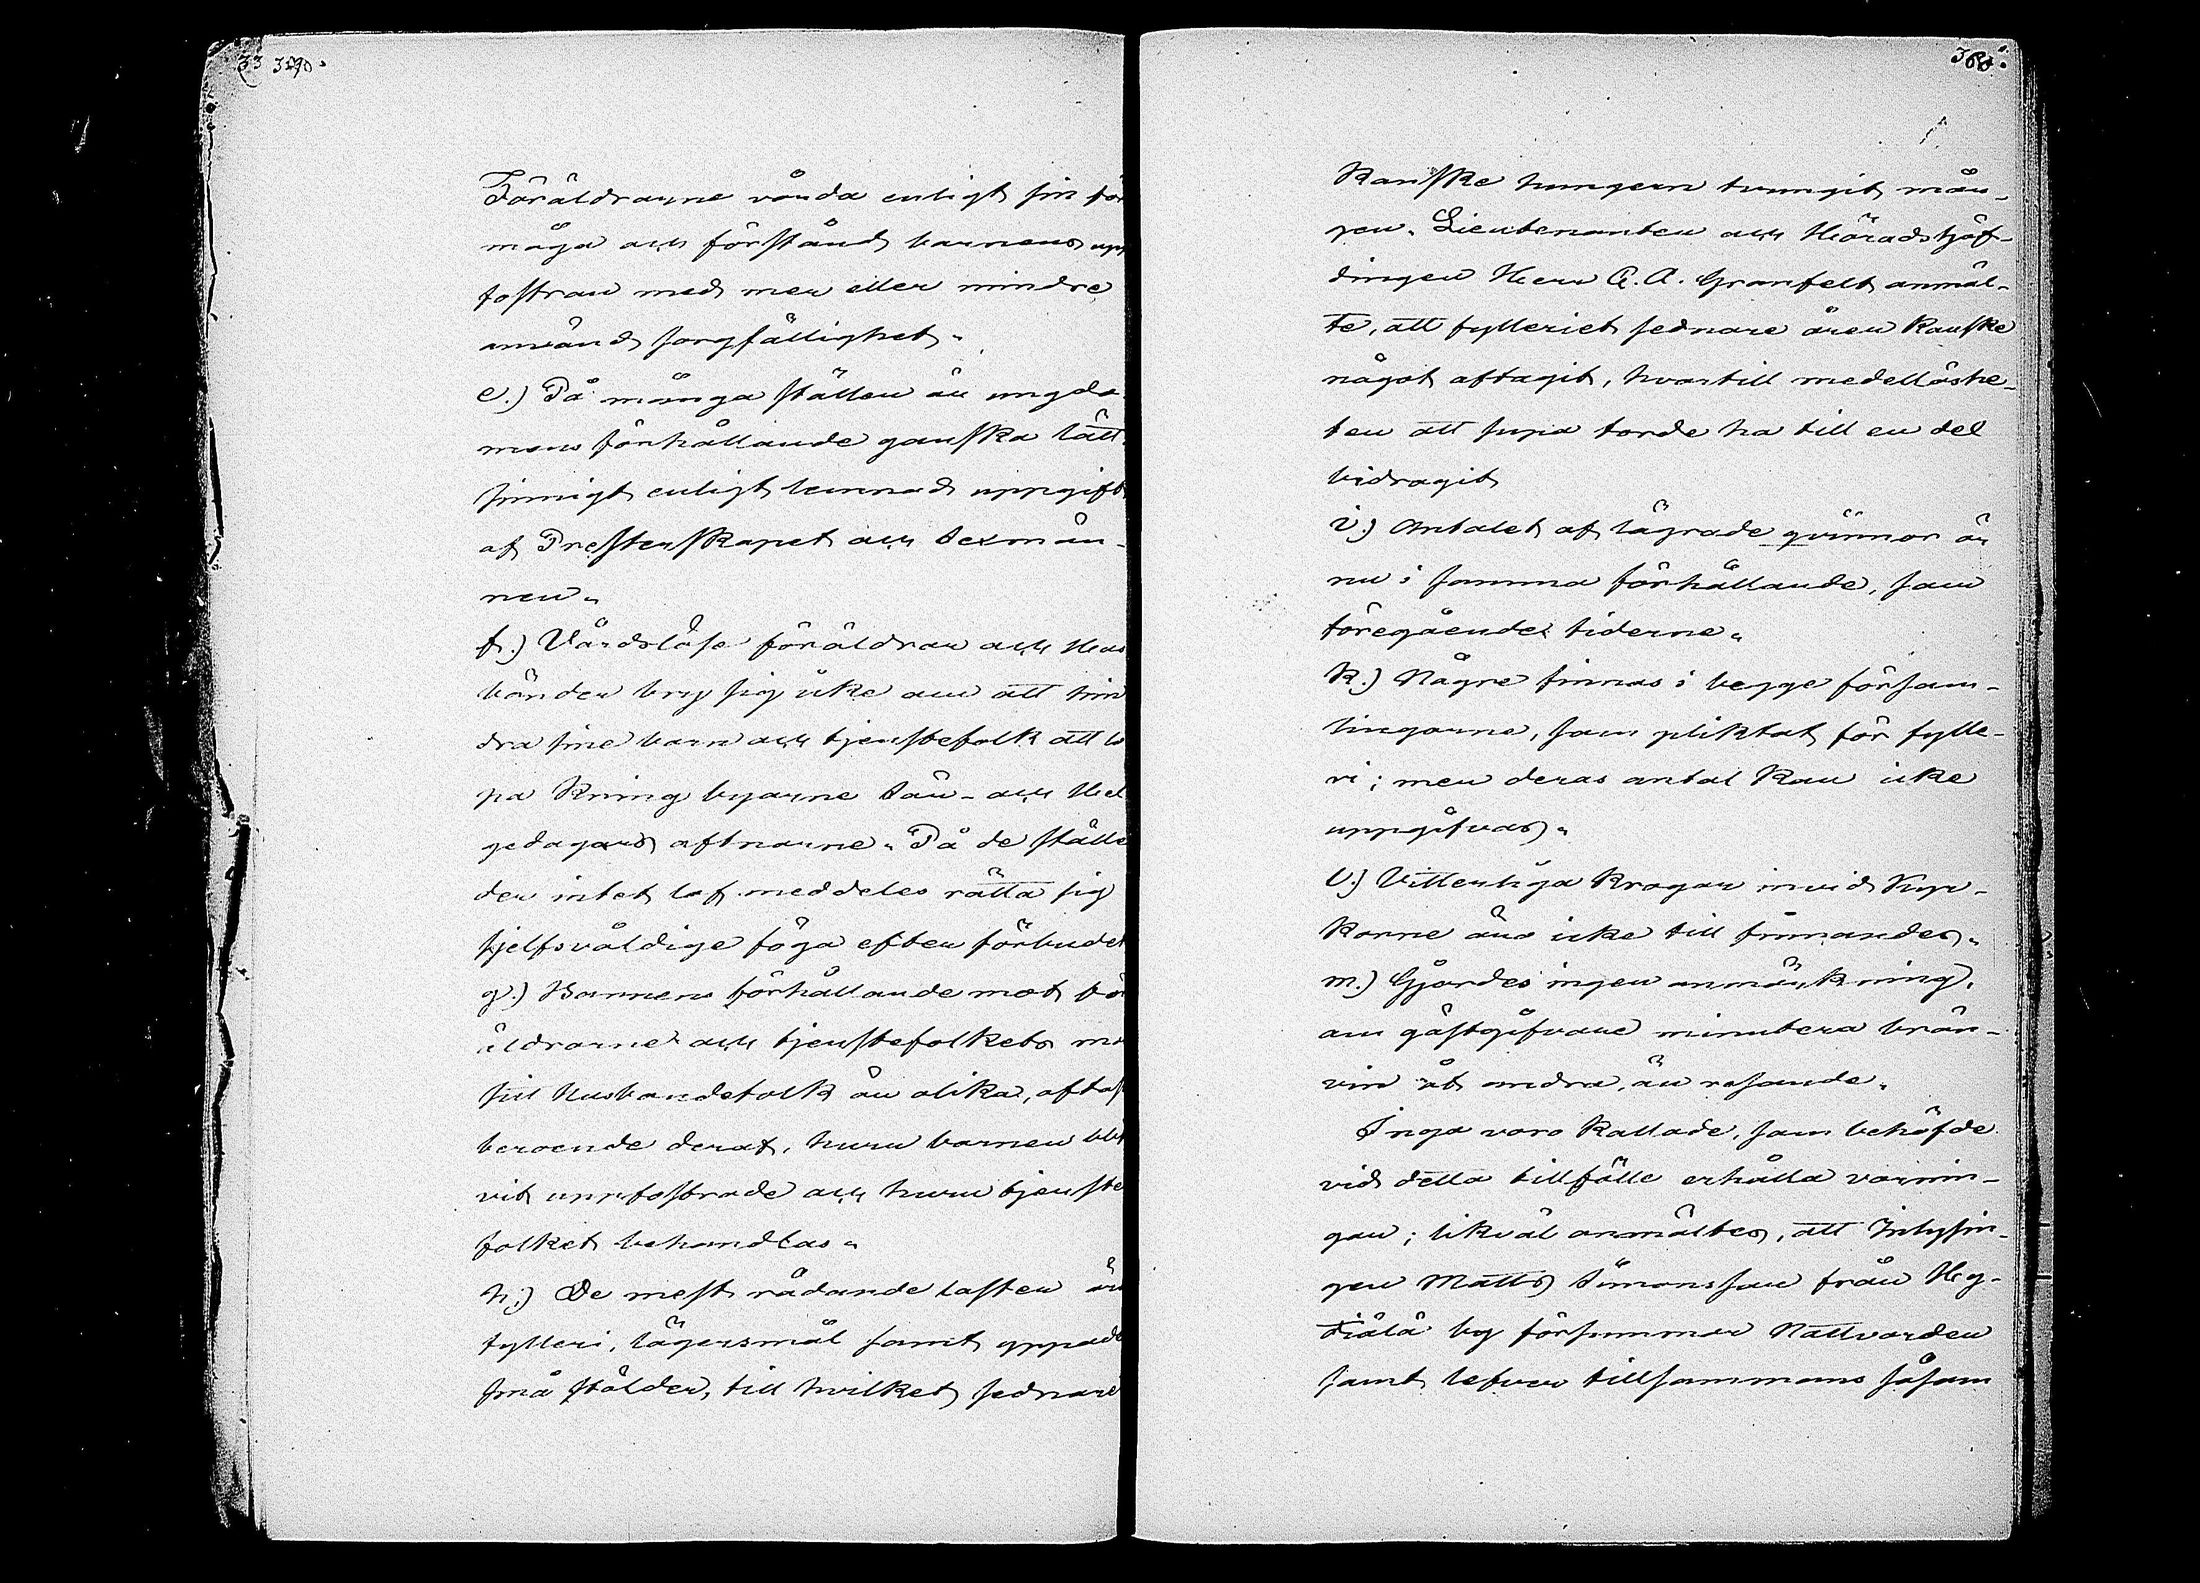 Föräldrarne vårda enligt sin för
måga och förstånd barnens upp
fostran med mer eller mindre
använd sorgfällighet.
e.) På många ställen är ungdo
mens förhållande ganska lätt
sinnigt enligt lemnad uppgift
af Presterskapet och sexmän-
nen.
f.) Vårdslöse föräldrar och Hus
bönder bry sig icke om att hin
dra sine barn och tjenstefolk att lö
pa kring byarne Sön- och Hel
gedagars aftnarne. På de ställe
der intet lof meddeles rätta sig
sjelfsvåldige föga efter förbudet
g.) Barnens förhållande mot för
äldrarne och tjenstefolkets mo
sitt Husbondefolk är olika, oftast
beroende deraf, huru barnen bli
vit uppfostrade och huru tjenste
folket behandlas.
h.) De mest rådande laster är
fylleri, lägersmål samt yppade
små stölder, till hvilket sednare
368.
Kanske hungern tvungit mån-
gen. Lieutenanten och Häradshöf-
dingen Herr C. A. Granfelt anmäl-
te, att fylleriet sednare åren Kanske
något aftagit, hvartill medellöshe-
ten att supa torde ha till en del
bidragit
i.) Antalet af lägrade qvinnor är
nu i samma förhållande, som
föregående tiderne.
k.) Någre finnas i begge försam-
lingarne, som pliktat för fylle-
ri; men deras antal kan icke
uppgifvas.
l.) Vitterliga krogar invid Kyr-
korne äro icke till finnandes.
m.) Gjordes ingen anmärkning,
om gästgifvare minutera brän-
vin åt andra, än resande.
Inga voro kallade, som behöfde
vid detta tillfälle erhålla varnin-
gar; likväl anmältes, att Inhysin-
gen Matts Simonsson från Hy-
tiälä by försummar Nattvarden
samt lefver tillsammans såsom